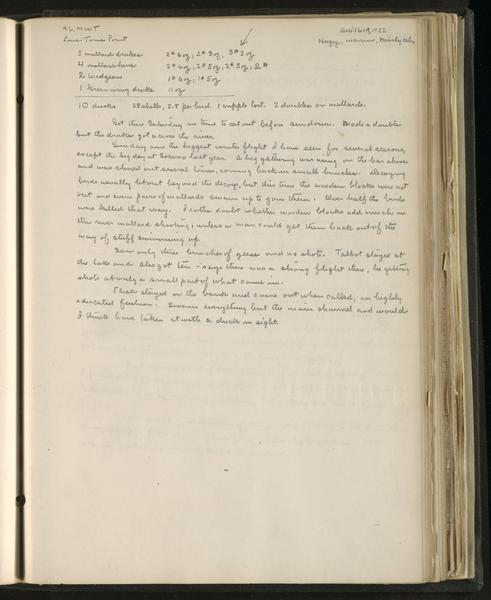 AL, MWT
Lone Tree Point
Hazy, warm, nearly calm
3 mallard drakes 2# 6 oz, 2# 3 oz, 3# 2 oz
4 mallard hens 2# 6 oz, 2# 5 oz, 2# 3 oz, 2#
2 widgeon 1# 6 oz, 1# 5 oz
1 Greenwing drake 11 oz
10 ducks. 28 shells, 2.8 per bird. 1 cripple lost. 2 doubles on mallards.
Got there Saturday in time to set out before sundown. Made a double
but the drakes got across the river.
Sunday saw the biggest flight I have seen for several seasons,
except the big day at last year. A big gathering was using on the bar above
and was stirred out several times, coming back in small bunches. Decoying
birds usually lit beyond the decoys, but this time the wooden blocks were not
out and even pairs of mallards swam up to join them. Over half the birds
were killed that way. I rather doubt whether wooden blocks add much in
this river mallard shooting, unless a man could get them back out of the
way of stuff swimming up.
Saw only three bunches of geese and no shots. Talbot stayed at
the lake and also got ten - says there was a strong flight there, he getting
shots at only a small part of what came in.
Flick stayed on the bank and came out when called, in highly
educated fashion. Swam everything but the main channel and would
I think have taken it with a duck in sight.